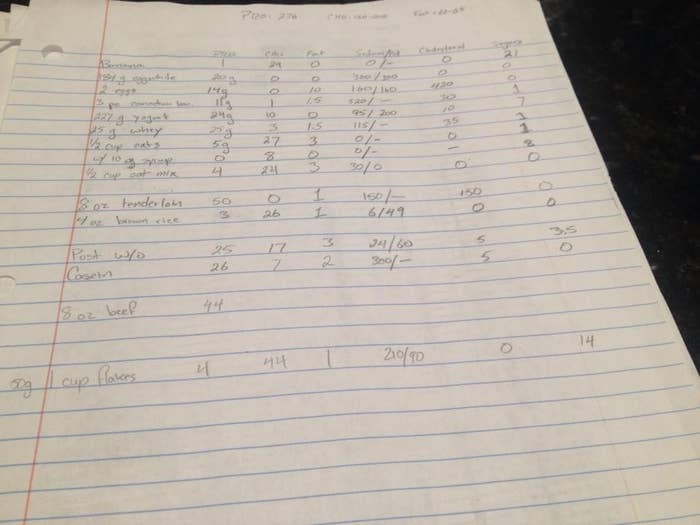 PRO: 270 CHO:
PRO CHO Fat Sodium/Pot Cholesterol Sugars
Banana 1 29 0 0/- 0 21
184 g eggwhite 20g 0 0 300/300 0 0
2 eggs 14g 0 10 160/160 420 0
3 pc 11g 1 1.5 520/- 30 1
227 g yogurt 24g 10 0 95/200 10 7
25 g whey 25g 3 1.5 115/- 35 1
1/2 cup oats 5g 27 3 0/- 0 1
w/ 10 g syrup 0 8 0 0/- - 8
1/2 cup oat mix 4 24 3 30/0 0 0
8 oz tenderloin 50 0 1 150/- 150 0
oz brown rice 3 26 1 6/49 0 0
Post w/o 25 17 3 24/60 5 3.5
Casein 26 7 2 300/- 5 0
8 oz beef 44
50g 1 cup flakes 4 44 1 210/90 0 14